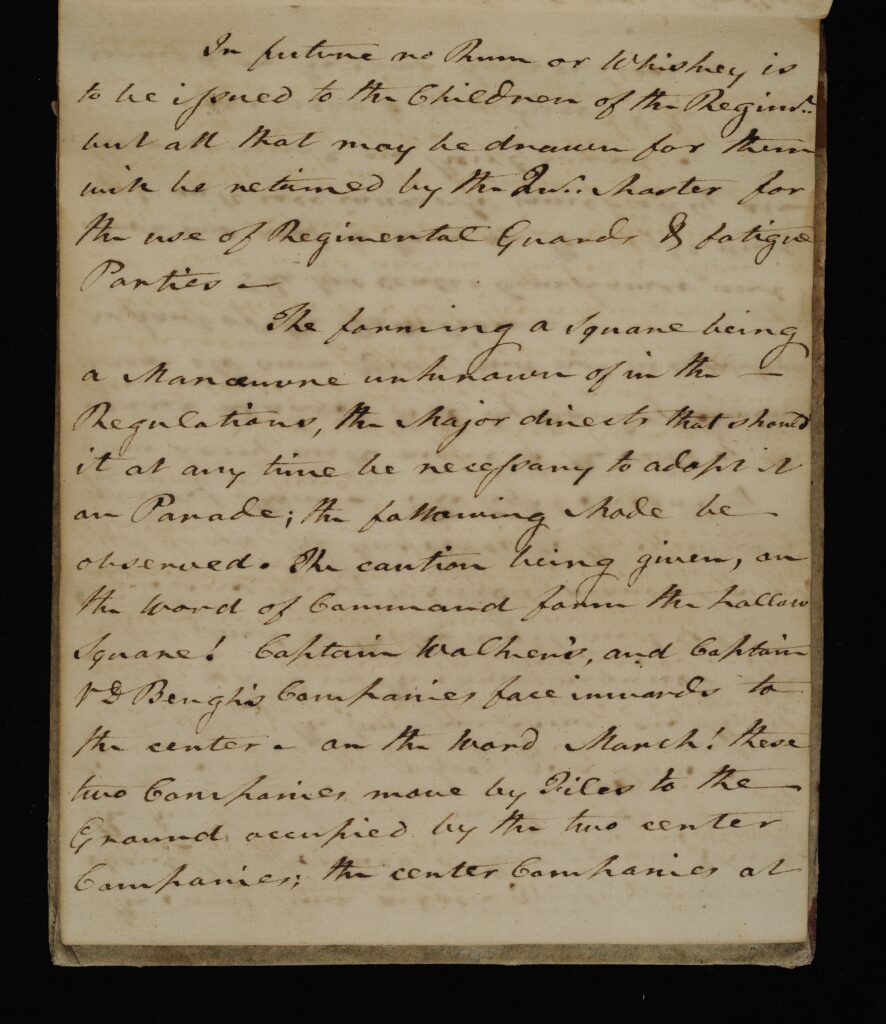 In future no Rum or Whiskey is
to be issued to the Children of the Regimt.
but all that may be drawn for them
will be retained by the Qur. Master for
the use of Regimental Guards & fatigue
Parties –
The forming a Square being
a Manœuvre unknown of in the –
Regulations, the Major directs that should
it at any time be necessary to adopt it
on Parade; the following Mode be
observed. The caution being given, on
the Word of Command form the hollow
Square! Captain Walker's, and Captain
Vd Bengh's Companies face inwards to
the center – on the Word March! these
two Companies move by Files to the
Ground occupied by the two center
Companies; the center Companies at